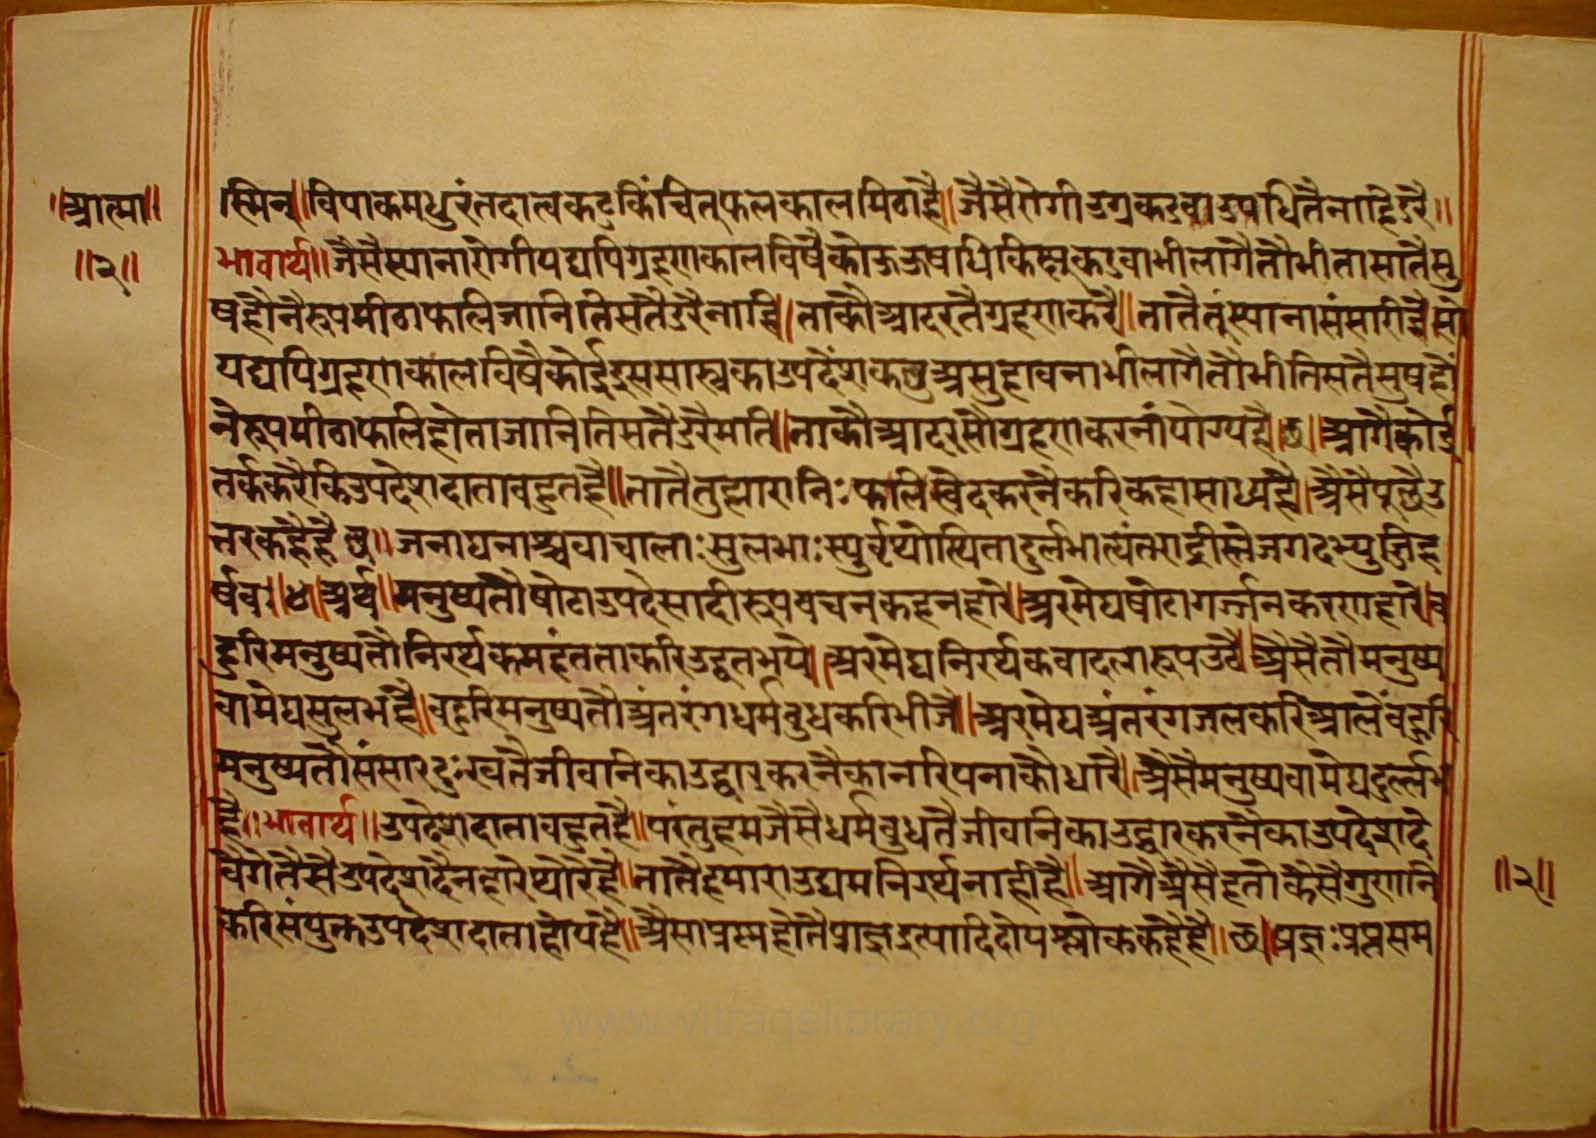 ॥आत्मा॥
॥२॥
स्मिन्॥विपाकमधुरंतदात्वकटुकिंचित्फलकालमिठाहै॥जैसैरोगीउग्रकडवाउषधितैनाहिडरै॥
भावार्थ॥जैसैस्यानारोगीयद्यपिग्रहणकालविषैकोऊऊषधिकिछूकडवाभीलागैतौभीतासातैसु
षहोनैरूपमीठाफालिजानितिसतैडरैनाहि।ताकौआदरतैग्रहणकरै॥तातैतूंस्यानासंसारिहैसो
यद्यपिग्रहणकालविषैकोईइससास्त्रकाउपदेशकछुअसुहावनाभीलागैतौभीतिसतैसुषहो
नेरूपमीठाफालिहोताजानितिसतैडरैमति॥ताकौआदरसौग्रहणकरनांयोग्यहै॥छ॥आगैकोई
तर्ककरैकिउपदेशदाताबहुतहै॥तातैतुह्मारानिःफालिखेदकरनैकरिकहासाध्यहै।अैसैपूछैउ
त्तरकहैहैछ॥जनाघनाश्चवाचालाःसुलभाःस्युर्वृथोत्थितादुर्लभात्यंतरार्द्रास्तेजगदभ्युज्जिह
र्षवः॥४॥अर्थ॥मनुष्यतौषोटाउपदेसादीरूपवचनकहनहारे।अरमेघषोटागर्ज्जनकरणहारे।ब
हुरिमनुष्यतौनिरर्थकमहंतताकरिउद्धतभये।अरमेघनिरर्थकवादलारूपउठै।अैसैतौमनुष्य
वामेघसुलभहै॥बहुरिमनुष्यतौअंतरंगधर्मबुधकरिभीजै॥अरमेघअंतरंगजलकरिआलेबहुरि
मनुष्यतौसंसारदुःखतैजीवानिकाउद्धारकरनैकानारिपनाकौधारै।अैसैमनुष्यवामेघदुर्ल्लभ
है॥भावार्थ॥उपदेशदाताबहुतहै॥परंतुहमजैसैधर्मबुधतैजीवानिकाउद्धारकरनैकाउपदेशदे
वैगेतैसैउपदेशदैनहारेथोरेहै॥तातैहमाराउद्यमनिरर्थनाहीहै॥आगैअैसैहतौकैसैगुणनि
करिसंयुक्तउपदेशदाताहोयहै॥अैसाप्रस्नहोतैप्राज्ञइत्यादिदोयश्लोककहैहै॥छ॥प्राज्ञःप्राप्तसम
॥२॥
www.vitragelibrary.org